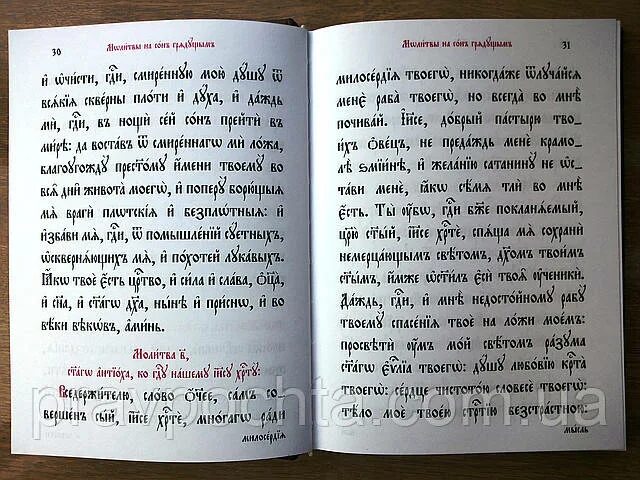 30
Мѡли́твы на со́нъ грѧдꙋ́щымъ
и҆ ѡ҆чи́сти, гдⷭ҇и, смире́ннꙋю мою̀ дꙋ́шꙋ ѿ
всѧ́кїѧ скве́рны пло́ти и҆ дꙋ́ха, и҆ да́ждь
мѝ, гдⷭ҇и, въ нощѝ се́й со́нъ прейтѝ въ
ми́рѣ: да воста́въ ѿ смире́ннагѡ мѝ ло́жа,
благоꙋгождꙋ̀ прест҃о́мꙋ и҆́мени твоемꙋ̀ во
всѧ̑ дни̑ живота̀ моегѡ̀, и҆ поперꙋ̀ борю́щыѧ
мѧ̀ врагѝ плѡтскі̑ѧ и҆ безплѡ́тныѧ: и҆
и҆зба́ви мѧ̀, гдⷭ҇и, ѿ помышле́нїй сꙋ́етныхъ,
ѡ҆скверна́ющихъ мѧ̀, и҆ по́хотей лꙋка́выхъ.
Ꙗ҆́кѡ твоѐ є҆́сть црⷭ҇тво, и҆ си́ла и҆ сла́ва, ѻ҆ц҃а̀,
и҆ сн҃а, и҆ ст҃а́гѡ дх҃а, ны́нѣ и҆ при́снѡ, и҆ во
вѣ́ки вѣкѡ́въ, а҆ми́нь.
Моли́тва в҃,
ст҃а́гѡ а҆нтїо́ха, ко гдⷭ҇ꙋ на́шемꙋ і҆и҃сꙋ хрⷭ҇тꙋ̀:
Вседержи́телю, сло́во ѻ҆́ч҃ее, са́мъ со-
верше́нъ сы́й, і҆и҃се хрⷭ҇тѐ, мно́гагѡ ра́ди
милосе́рдїѧ
Мѡли́твы на со́нъ грѧдꙋ́щымъ
31
милосе́рдїѧ твоегѡ̀, никогда́же ѿлꙋча́йсѧ
менѐ раба̀ твоегѡ̀, но всегда̀ во мнѣ̀
почива́й. І҆и҃се, до́брый па́стырю тво-
и́хъ ѻ҆ве́цъ, не преда́ждь менѐ крамо-
лѣ̀ ѕмїи́нѣ, и҆ жела́нїю сатанинꙋ̀ не ѡ҆с-
та́ви менѐ, ꙗ҆́кѡ сѣ́мѧ тлѝ во мнѣ̀
є҆́сть. Ты̀ ᲂу҆̀бѡ, гдⷭ҇и бж҃е покланѧ́емый,
цр҃ю̀ ст҃ы́й, і҆и҃се хрⷭ҇тѐ, спѧ́ща мѧ̀ сохранѝ
немерца́ющимъ свѣ́томъ, дх҃омъ твои́мъ
ст҃ы́мъ, и҆́мже ѡ҆ст҃и́лъ є҆сѝ твоѧ̑ ᲂу҆ченикѝ.
Да́ждь, гдⷭ҇и, и҆ мнѣ̀ недосто́йномꙋ рабꙋ̀
твоемꙋ̀ спасе́нїе твоѐ на ло́жи мое́мъ:
просвѣтѝ ᲂу҆́мъ мо́й свѣ́томъ ра́зꙋма
ст҃а́гѡ є҆ѵⷢ҇лїа твоегѡ̀: дꙋ́шꙋ любо́вїю крⷭ҇та̀
твоегѡ̀: се́рдце чистото́ю словесѐ твоегѡ̀:
тѣ́ло моѐ твое́ю стрⷭ҇тїю безстра́стною:
мы́сль
pravpochta.com.ua